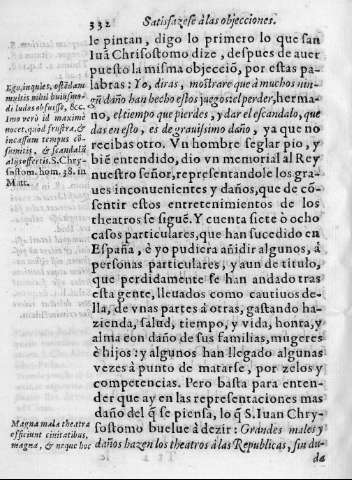 332 Satisfazese à las objecciones.
le pintan, digo lo primero lo que san
Iuã Chrisostomo dize, despues de auer
puesto la misma objecciõ, por estas pa-
labras: Yo, diras, mostrare que à muchos nin-
gũ daño han hecho estos juegos: el perder, herma-
no, el tiempo que pierdes, y dar el escandalo, que
das en esto, es de grauissimo daño, ya que no
recibas otro. Vn hombre seglar pio, y
biẽ entendido, dio vn memorial al Rey
nuestro señor, representandole los gra-
ues inconuenientes y daños, que de cõ-
sentir estos entretenimientos de los
theatros se siguẽ. Y cuenta siete ò ocho
casos particulares, que han sucedido en
España, è yo pudiera añidir algunos, á
personas particulares, y aun de titulo,
que perdidamente se han andado tras
esta gente, lleuados como cautiuos de-
lla, de vnas partes á otras, gastando ha-
zienda, salud, tiempo, y vida, honra, y
alma con daño de sus familias, mugeres
è hijos: y algunos han llegado algunas
vezes à punto de matarse, por zelos y
competencias. Pero basta para enten-
der que ay en las representaciones mas
daño del q̃ se piensa, lo q̃ S. Iuan Chry-
sostomo buelue à dezir: Grandes males y
daños hazen los theatros à las Republicas, sin du-
da
Ego, inquies, ostẽdam
multis nihil huiusmo-
di ludos obfuisse, &c.
Imo verò id maximè
nocet, quod frustra, &
incassum tempus cõ-
sumitis, & scandalũ
alijs offertis. S. Chry-
sostom. hom. 38. in
Matt.
Magna mala theatra
efficiunt ciuitatibus,
magna, & neque hoc